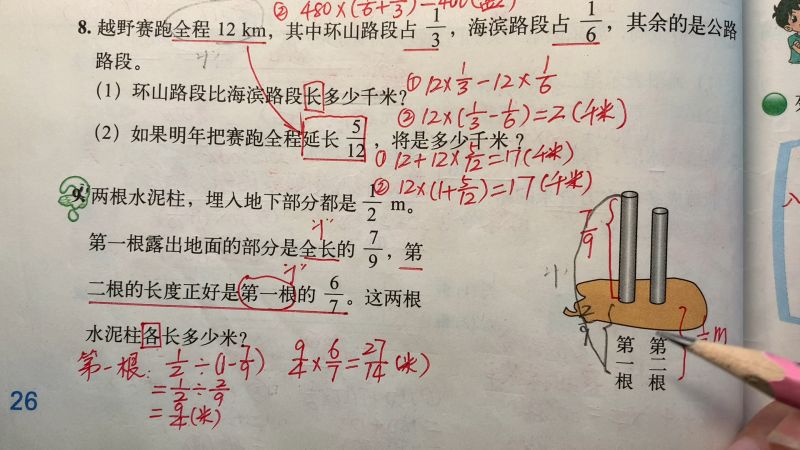 ② 480×(1/6+1/3)-400
8. 越野赛跑全程 12 km，其中环山路段占 1/3，海滨路段占 1/6，其余的是公路
"1"
路段。
(1) 环山路段比海滨路段长多少千米？ ① 12×1/3-12×1/6
② 12×(1/3-1/6)=2(千米)
(2) 如果明年把赛跑全程延长 5/12，将是多少千米？
① 12+12×5/12=17(千米)
② 12×(1+5/12)=17(千米)
9. 两根水泥柱，埋入地下部分都是 1/2 m。
"1"
第一根露出地面的部分是全长的 7/9，第
"1"
二根的长度正好是第一根的 6/7。这两根
水泥柱各长多少米？
第一根：1/2÷(1-7/9) 9/4×6/7=27/14(米)
=1/2÷2/9
=9/4(米)
7/9
"1"
2/9
1/2m
第一根
第二根
26